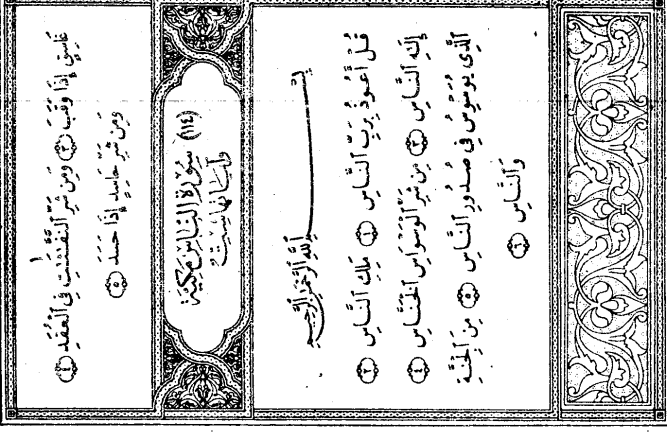 غَاسِقٍ إِذَا وَقَبَ ٣ وَمِن شَرِّ ٱلنَّفَّٰثَٰتِ فِى ٱلْعُقَدِ ٤
وَمِن شَرِّ حَاسِدٍ إِذَا حَسَدَ ٥
(١١٤) سُورَةُ النَّاسِ مَكِيَّة
وَآيَاتُهَا سِتٌّ
بِسْمِ ٱللَّهِ ٱلرَّحْمَٰنِ ٱلرَّحِيمِ
قُلْ أَعُوذُ بِرَبِّ ٱلنَّاسِ ١ مَلِكِ ٱلنَّاسِ ٢
إِلَٰهِ ٱلنَّاسِ ٣ مِن شَرِّ ٱلْوَسْوَاسِ ٱلْخَنَّاسِ ٤
ٱلَّذِى يُوَسْوِسُ فِى صُدُورِ ٱلنَّاسِ ٥ مِنَ ٱلْجِنَّةِ
وَٱلنَّاسِ ٦